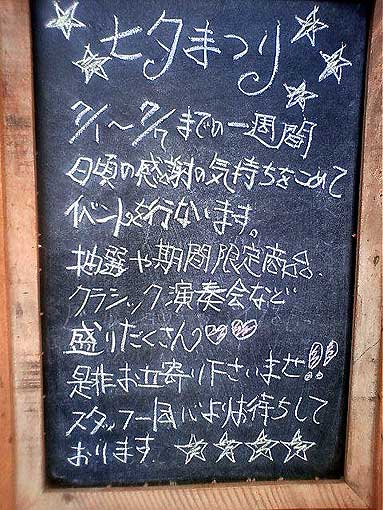 七夕まつり
7/1〜7/7までの一週間
日頃の感謝の気持ちをこめて
イベントを行ないます。
抽選や期間限定商品、
クラシック演奏会など
盛りだくさん♡♡
是非お立寄り下さいませ!!
スタッフ一同心よりお待ちして
おります。☆☆☆☆